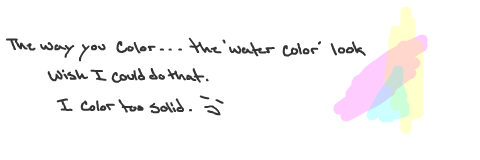 The way you color... the 'water color' look
wish I could do that.
I color too solid.